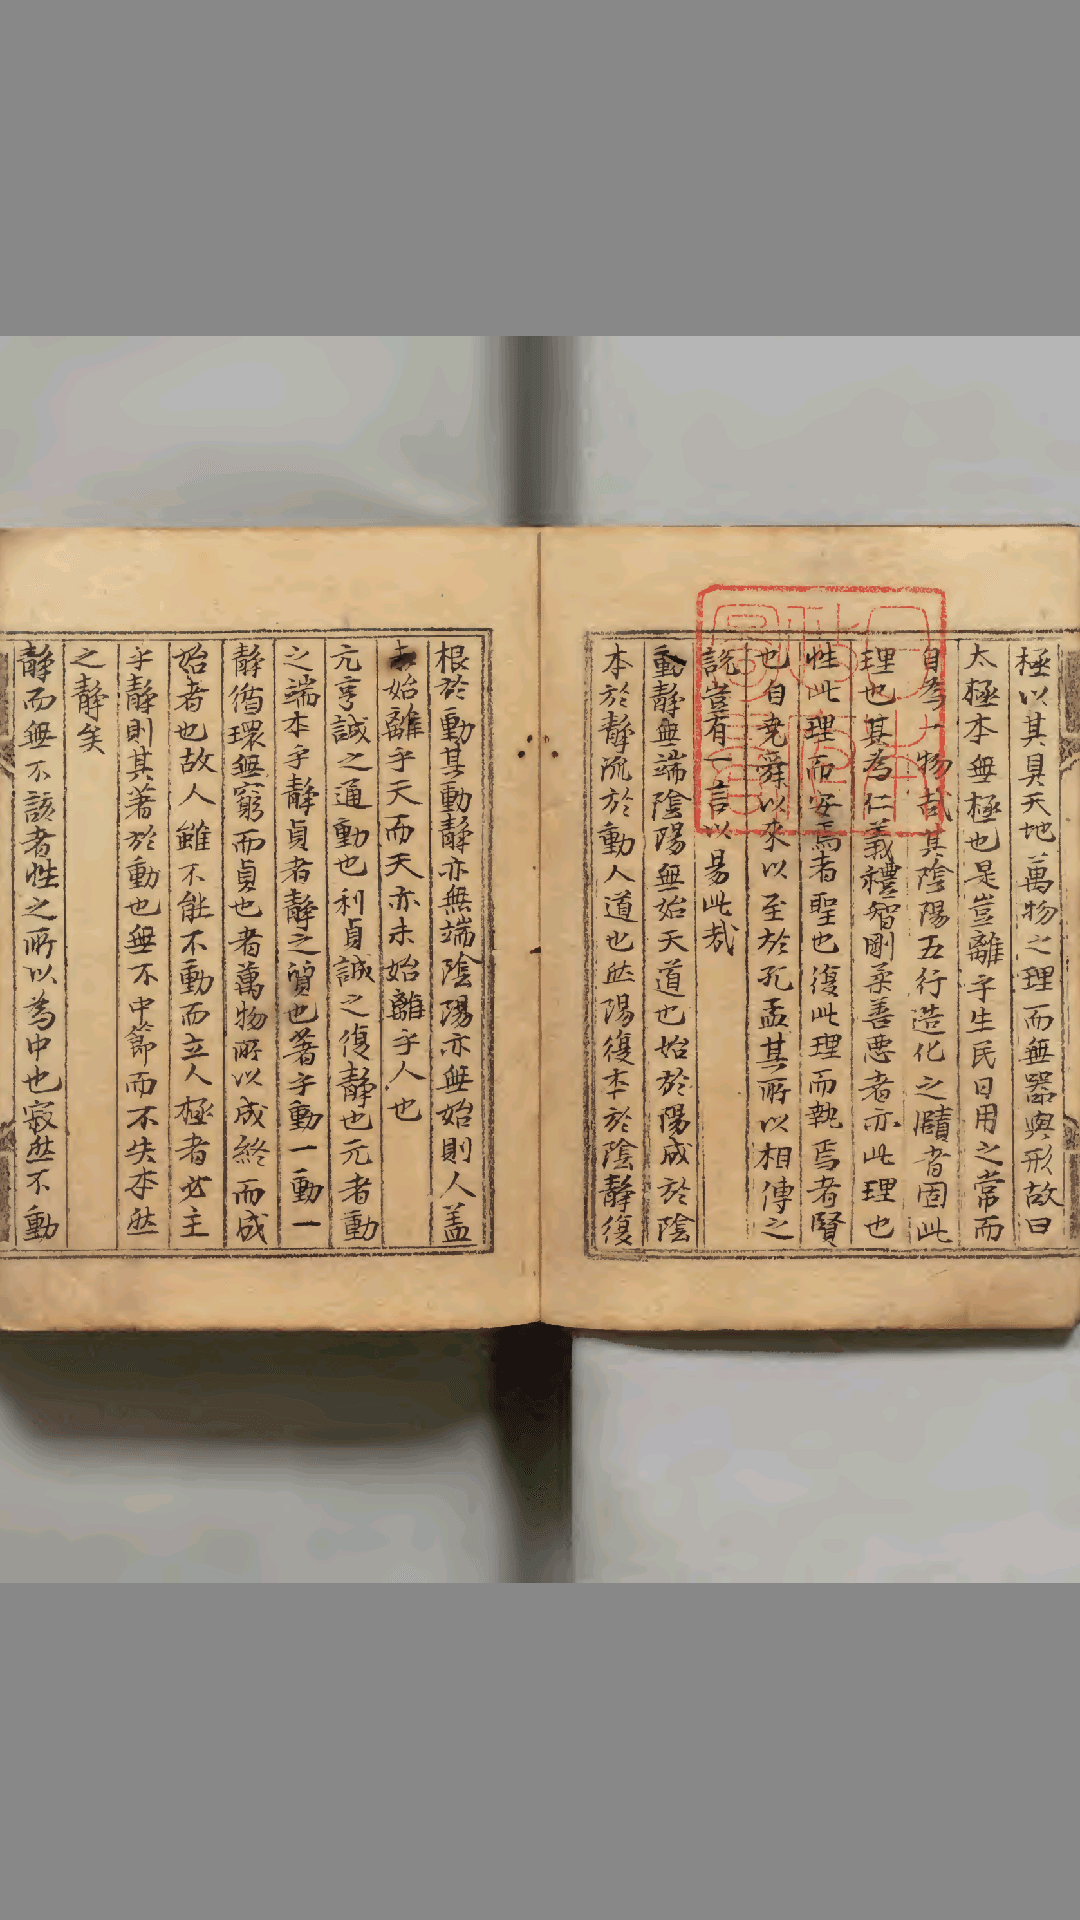 極以其具天地萬物之理而無器與形故曰
太極本無極也是豈離乎生民日用之常而
自為一物哉其陰陽五行造化之賾者固此
理也其為仁義禮智剛柔善惡者亦此理也
性此理而安焉者聖也復此理而執焉者賢
也自堯舜以來以至於孔孟其所以相傳之
說豈有一言以易此哉
動靜無端陰陽無始天道也始於陽成於陰
本於靜流於動人道也然陽復本於陰靜復
根於動其動靜亦無端陰陽亦無始則人蓋
未始離乎天而天亦未始離乎人也
元亨誠之通動也利貞誠之復靜也元者動
之端本乎靜貞者靜之質也著乎動一動一
靜循環無窮而貞也者萬物所以成終而成
始者也故人雖不能不動而立人極者必主
乎靜則其著於動也無不中節而不失本然
之靜矣
靜而無不該者性之所以為中也寂然不動